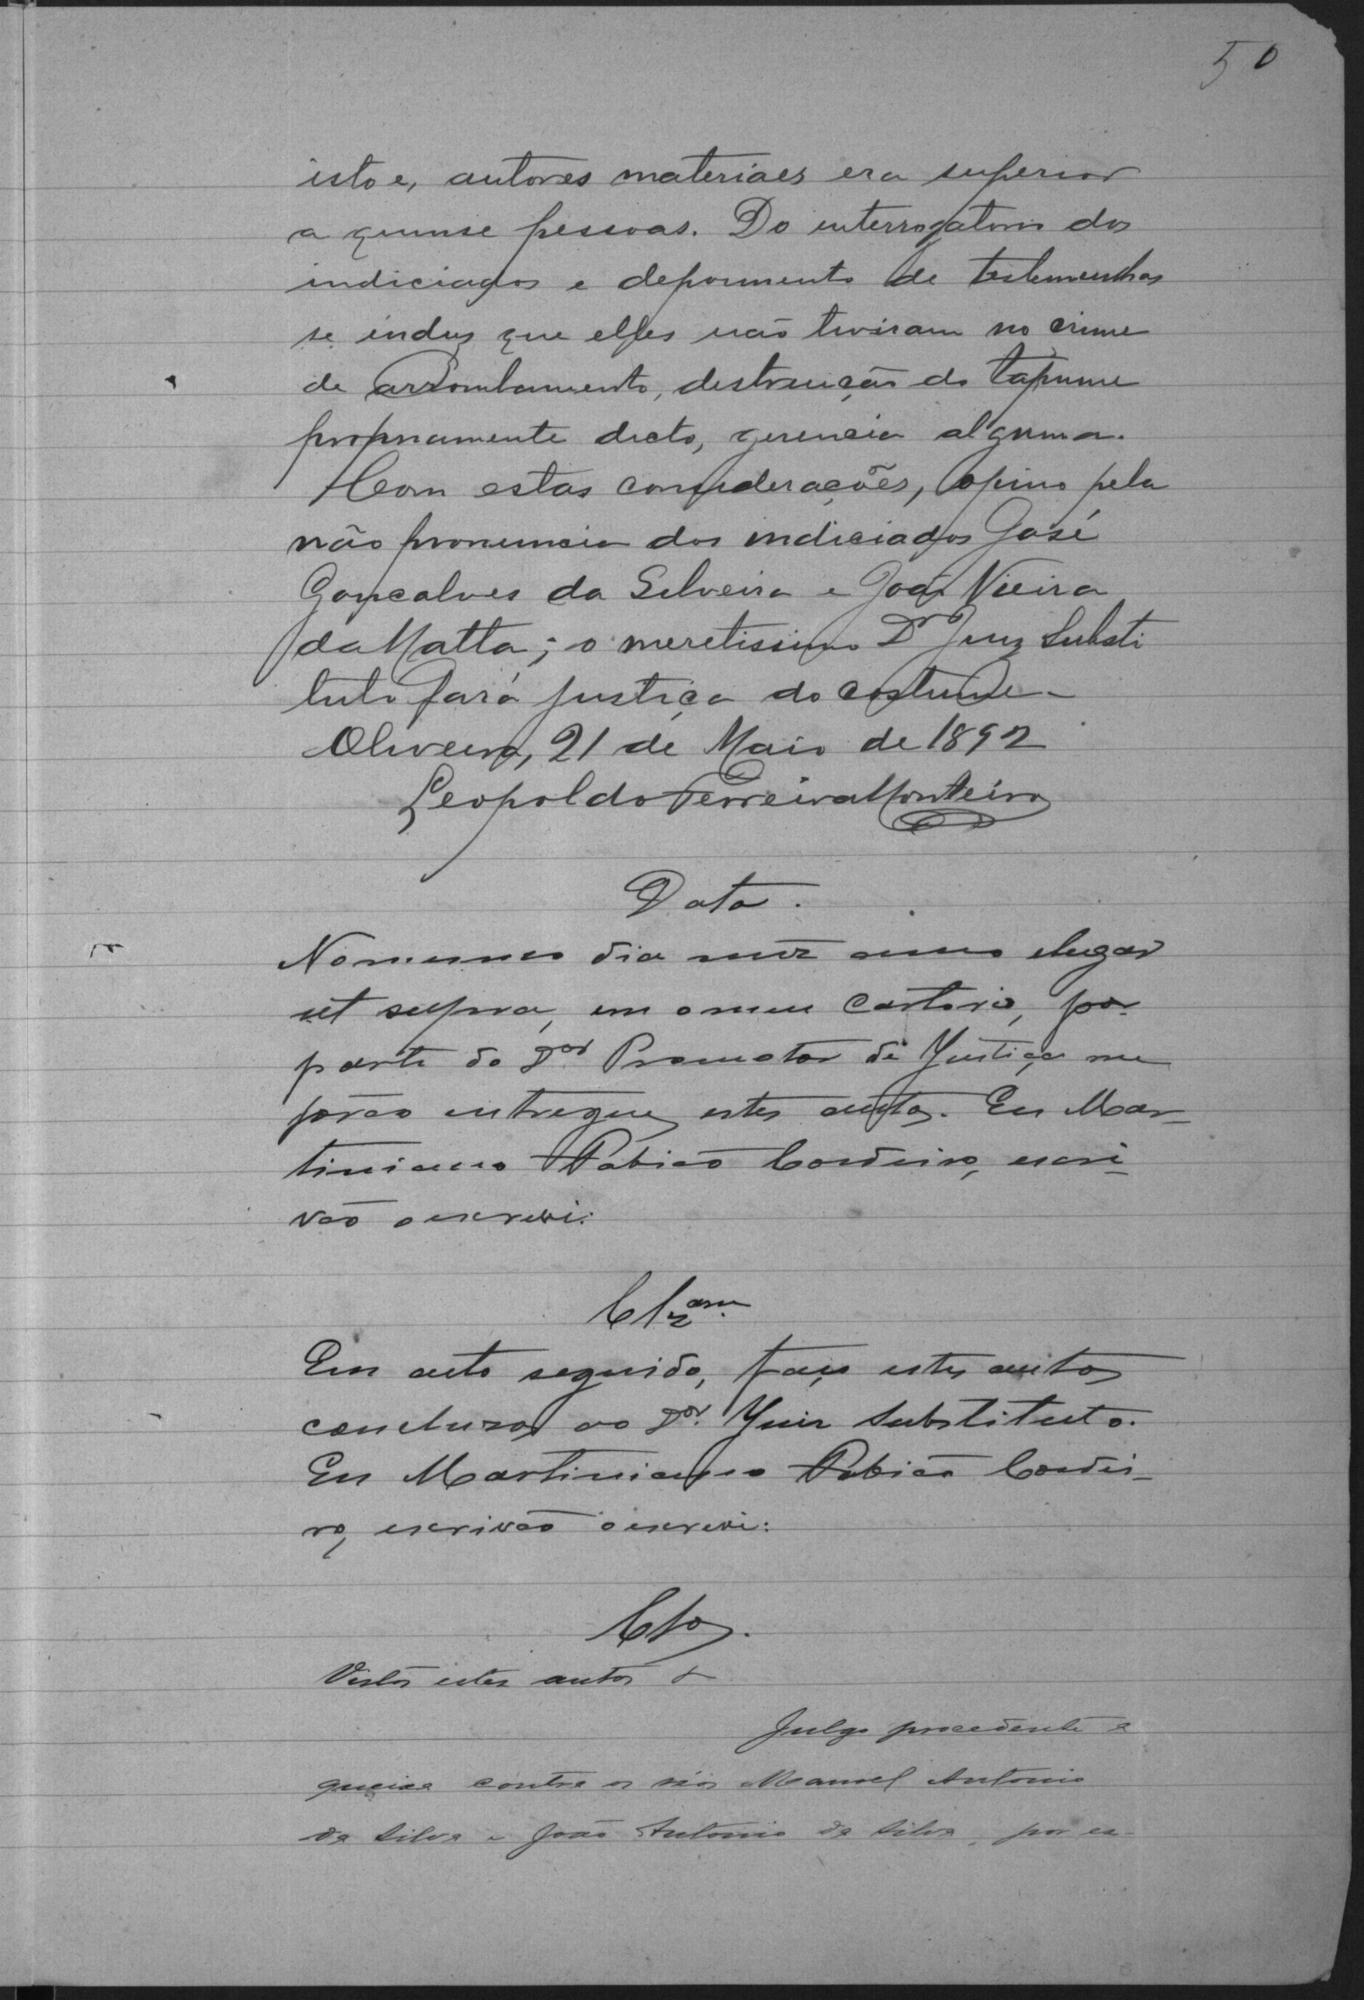 50
isto e, autores materiaes era superior
a quinse pessoas. Do interrogatorio dos
indiciados e depoimento de testemunhas
se induz que elles não tiveram no crime
de arrombamento, destruição do tapume
propriamente dicto, gerencia alguma.
Com estas considerações, opino pela
não pronuncia dos indiciados José
Gonçalves da Silveira e João Vieira
da Matta; o meretissimo Dr Juiz Substi
tuto fará justiça do costume
Oliveira, 21 de Maio de 1892
Leopoldo Ferreira Monteiro
Data.
No mesmo dia mez anno e lugar
ut supra, em o meu cartorio, por
parte do Dor Promotor de Justiça me
forão entregues estes autos. Eu Mar-
tiniano Cordeiro, escri-
vão o escrevi:
Clzam.
Em acto seguido, faço estes autos
concluzos ao Dor. Juiz Substituto.
Eu Martiniano Cordei-
ro, escrivão o escrevi:
Clos.
Vistos estes autos &
Julgo procedente a
queixa contra os réos Manoel Antonio
da Silva e João Antonio da Silva, por es-